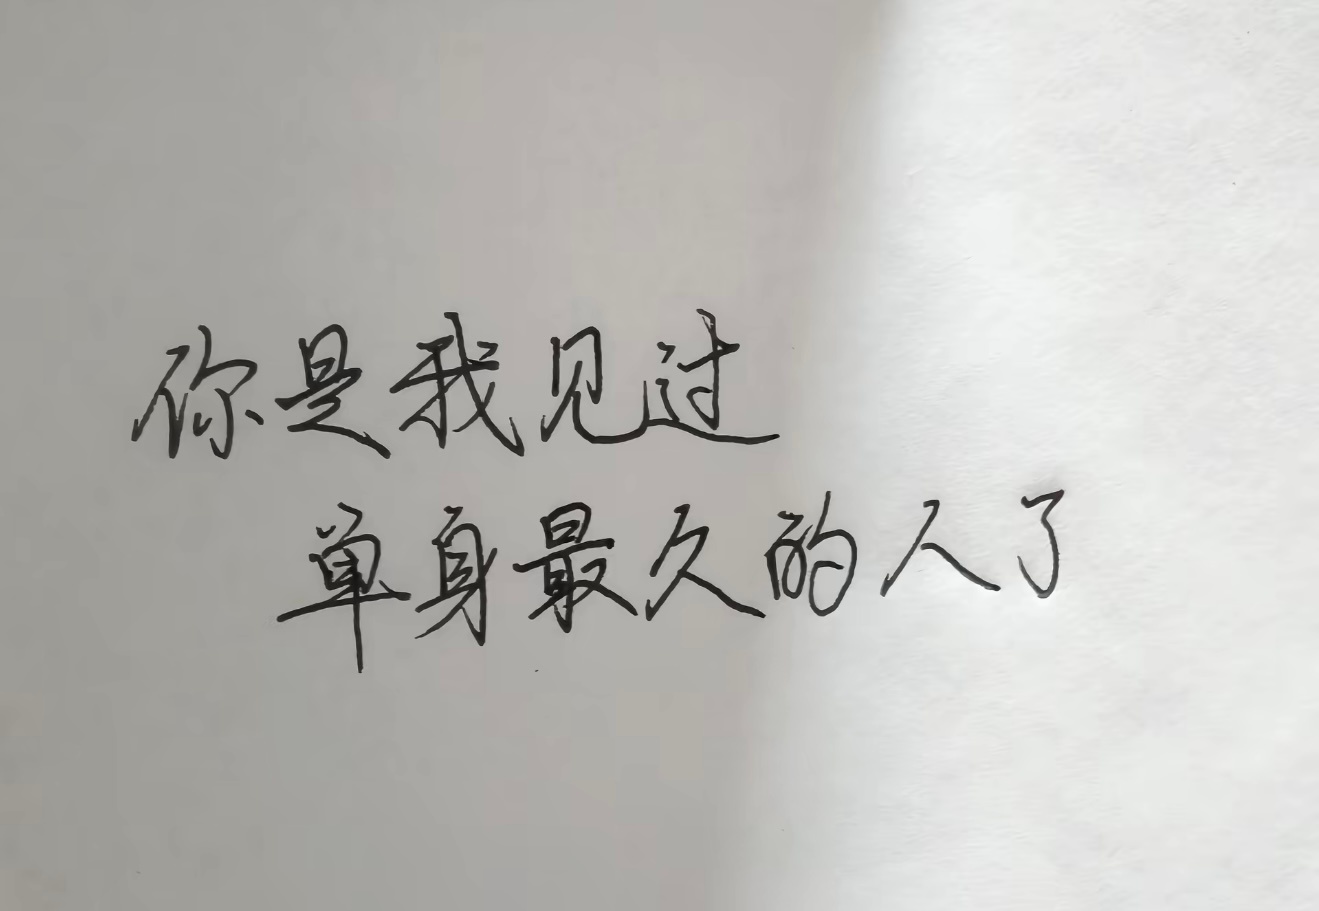 你是我见过
单身最久的人了